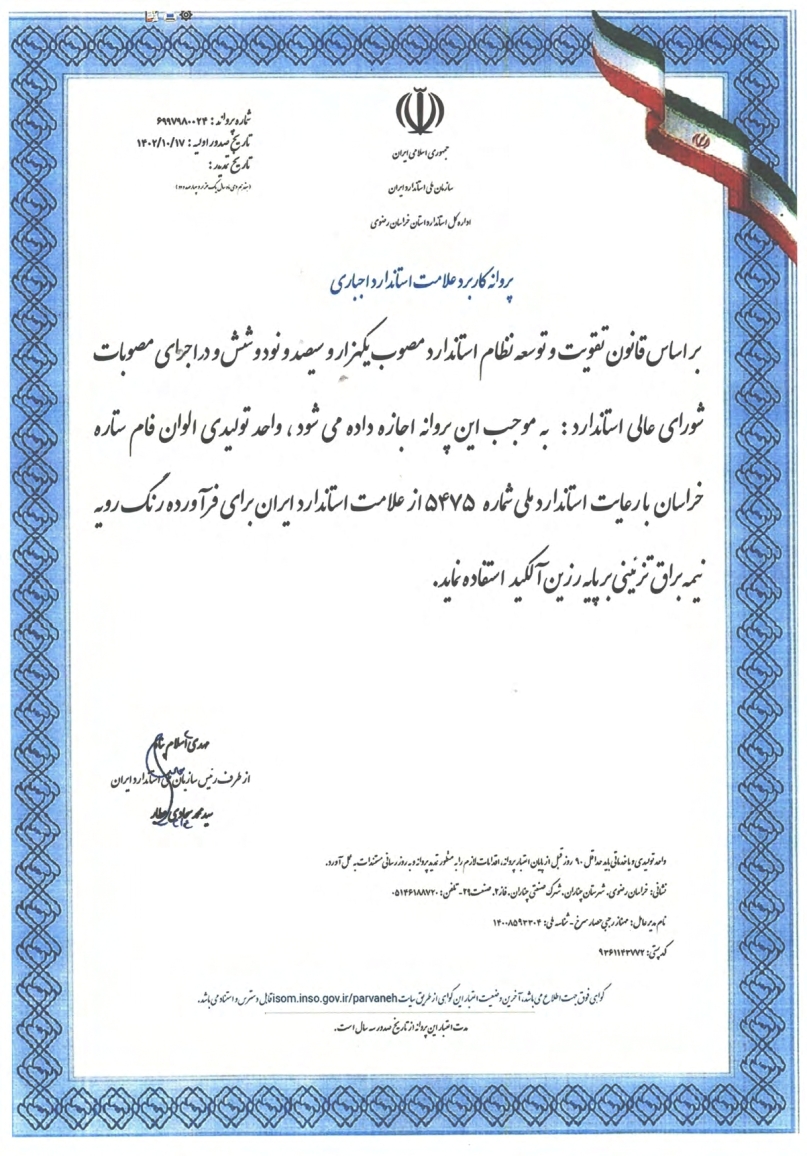 جمهوری اسلامی ایران
سازمان ملی استاندارد ایران
اداره کل استاندارد استان خراسان رضوی
شماره پروانه : ۶۹۹۷۹۸۰۰۲۴
تاریخ صدور اولیه : ۱۴۰۲/۱۰/۱۷
تاریخ تمدید :
پروانه کاربرد علامت استاندارد اجباری
بر اساس قانون تقویت و توسعه نظام استاندارد مصوب یکهزار و سیصد و نود و شش و در اجرای مصوبات
شورای عالی استاندارد : به موجب این پروانه اجازه داده می شود ، واحد تولیدی الوان فام ستاره
خراسان با رعایت استاندارد ملی شماره ۵۴۷۵ از علامت استاندارد ایران برای فرآورده رنگ رویه
نیمه براق تزئینی بر پایه رزین آلکید استفاده نماید.
مهدی اسلام پناه
از طرف رئیس سازمان ملی استاندارد ایران
سید محمد سجادی عطار
واحد تولیدی و یا خدماتی باید حداقل ۹۰ روز قبل از پایان اعتبار پروانه، اقدامات لازم را به منظور تمدید پروانه و به روز رسانی مستندات به عمل آورد.
نشانی: خراسان رضوی، شهرستان چناران، شهرک صنعتی چناران، فاز۲، صنعت۲۹ - تلفن: ۰۵۱۴۶۱۸۸۷۲۰
نام مدیرعامل: مهناز رجبی حصار سرخ - شناسه ملی: ۱۴۰۰۸۵۹۳۳۰۴
کد پستی: ۹۳۶۱۱۴۳۷۷۲
گواهی فوق جهت اطلاع می باشد، آخرین وضعیت اعتبار این گواهی از طریق سایت isom.inso.gov.ir/parvaneh قابل دسترس و استناد می باشد.
مدت اعتبار این پروانه از تاریخ صدور سه سال است.